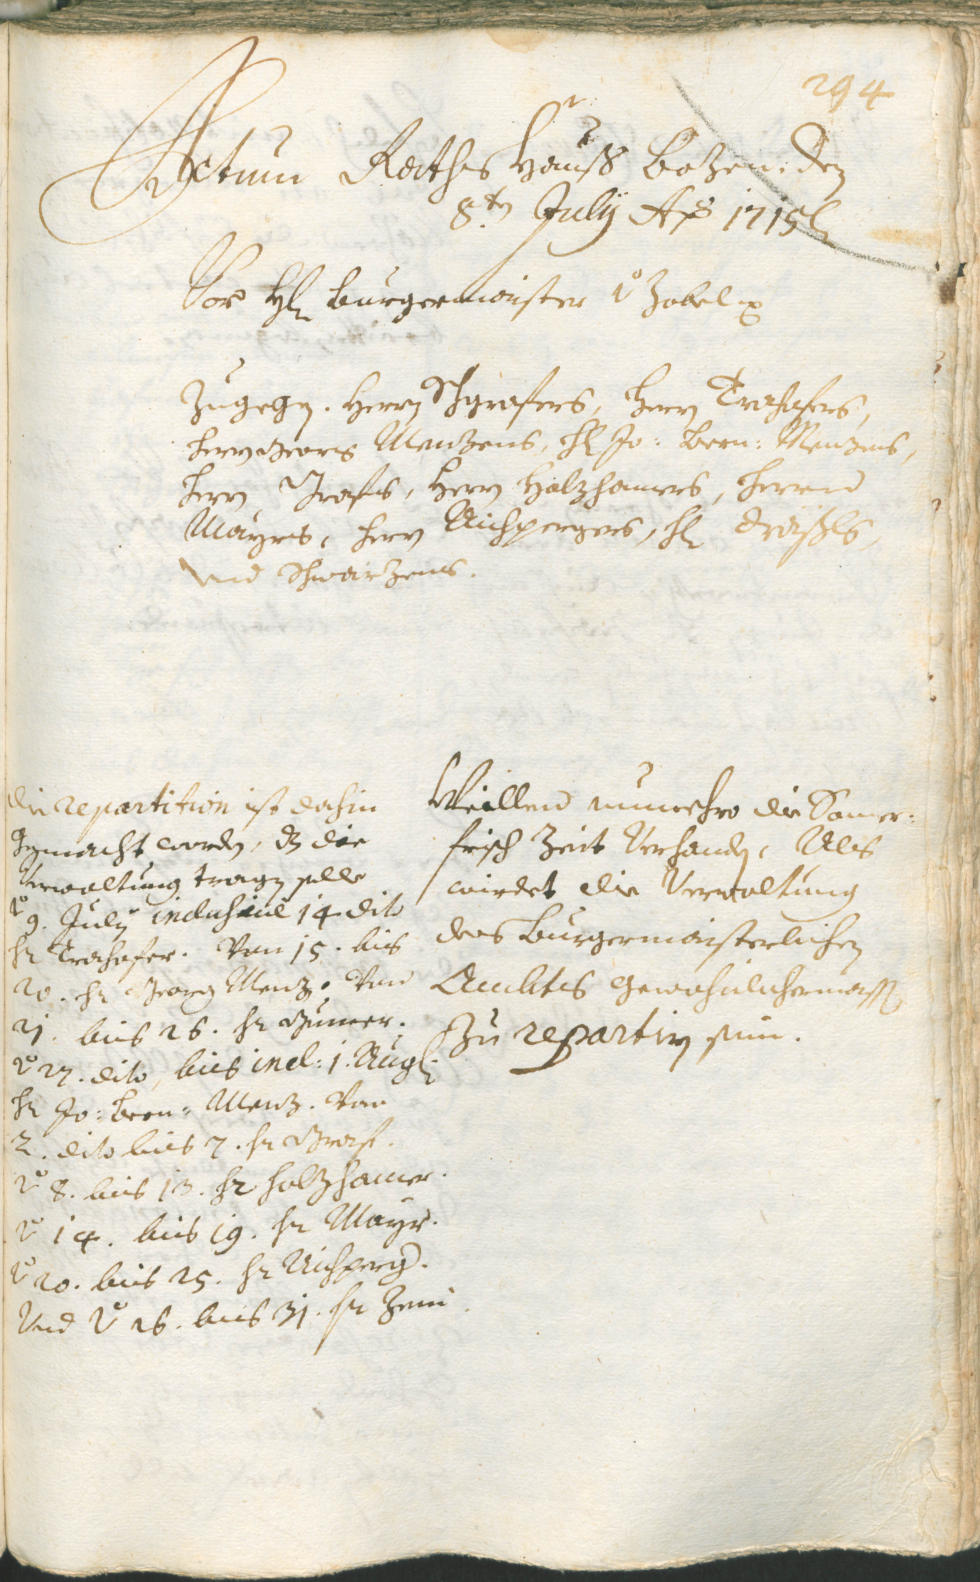 294
Actum Rathes Hauß Bozen den
8.ten July Aõ 1715
Vor Hl Burgermaister v Zobel
Zugegen. Herrn Herrn Trochofers,
Herrn Georg Menzens, Hl Jo: Bern: Menzens,
Herrn Grafs, Herrn Holzhamers, Herrn
Mayrs, Herrn Aichpergers, Hl
vnd Schwarzens.
die repartition ist dahin
gemacht worden, dz die
Verwaltung tragen solle
v 9. July inclusive 14 dito
Hr Trochofer. Von 15. bis
20. Hr Georg Menz. Von
21. bis 26. Hr Gumer.
v 27. dito, bis incl: 1. Aug:
Hr Jo: Bern: Menz. Von
2. dito bis 7. Hr Graf.
v 8. bis 13. Hr Holzhamer.
v 14. bis 19. Hr Mayr.
v 20. bis 25. Hr Aichperg.
Vnd v 26. bis 31. Hr
Weillen nunmehro die Somer:
frisch Zeit Verhanden, Als
wirdet die Verwaltung
des Burgermaisterlichen
Ambtes gewohnlichermassen
Zu repartirn sein.